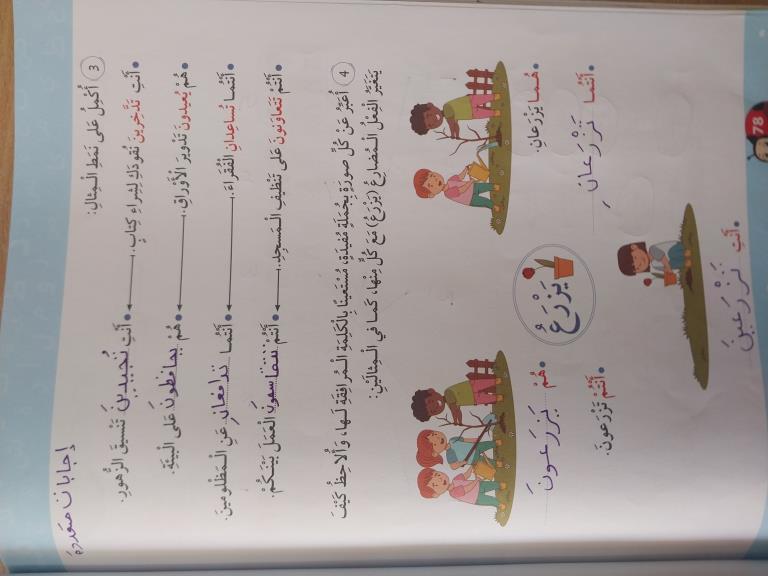 إجابات متعددة
3 أُكْمِلُ عَلى نَمَطِ الْـمِثالِ:
• أَنْتِ تَدَّخِرينَ نُقودَكِ لِشِراءِ كِتابٍ. • أَنْتِ تُجيدينَ تَنْسيقَ الزُّهورِ.
• هُمْ يُعيدونَ تَدْويرَ الْأَوْراقِ. • هُمْ يحافظونَ عَلى الْبيئَةِ.
• أَنْتُما تُساعِدانِ الْفُقَراءَ. • أَنْتُما تدافعانِ عَنِ الْـمَظْلومينَ.
• أَنْتُمْ تَتَعاوَنونَ عَلى تَنْظيفِ الْـمَسْجِدِ. • أَنْتُمْ تتقاسمونَ الْعَمَلَ بَيْنَكُمْ.
4 أُعَبِّرُ عَنْ كُلِّ صورَةٍ بِجُمْلَةٍ مُفيدَةٍ، مُسْتَعينًا بِالْكَلِمَةِ الْـمُرافِقَةِ لَـها، وَأُلاحِظُ كَيْفَ
يَتَغَيَّرُ الْفِعْلُ الْـمُضارِعُ (يَزْرَعُ) مَعَ كُلٍّ مِنْها، كَما في الْـمِثالَيْنِ:
• هُما يَزْرَعانِ.
• هُمْ يَزرَعونَ
• أَنْتُما تَزْرَعانِ
يَزْرَعُ
• أَنْتُمْ تَزْرَعونَ.
• أَنْتِ تَزْرَعينَ
78